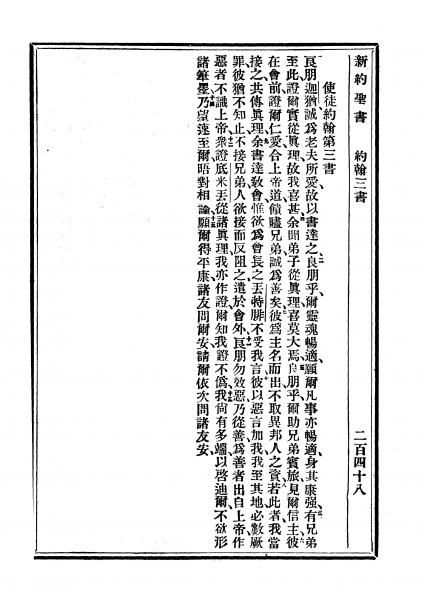 新約聖書 約翰三書 二百四十八
使徒約翰第三書
良朋迦猶誠爲老夫所愛故以書達之良朋乎爾靈魂暢適願爾凡事亦暢適身其康强有兄弟
至此證爾實從眞理故我喜甚余聞弟子從眞理喜莫大焉良朋乎爾助兄弟賓旅見爾信主彼
在會前證爾仁愛合上帝道饋贐兄弟誠爲善矣彼爲主名而出不取異邦人之資若此者我當
接之共傳眞理余書達敎會惟欲爲會長之丟特腓不受我言彼以惡言加我我至其地必數厥
罪彼猶不知止不接兄弟人欲接而反阻之遣於會外良朋勿效惡乃從善爲善者出自上帝作
惡者不識上帝衆證底米丟從諸眞理我亦作證爾知我證不僞我尙有多端以啓迪爾不欲形
諸筆墨乃望速至爾晤對相論願爾得平康諸友問爾安請爾依次問諸友安